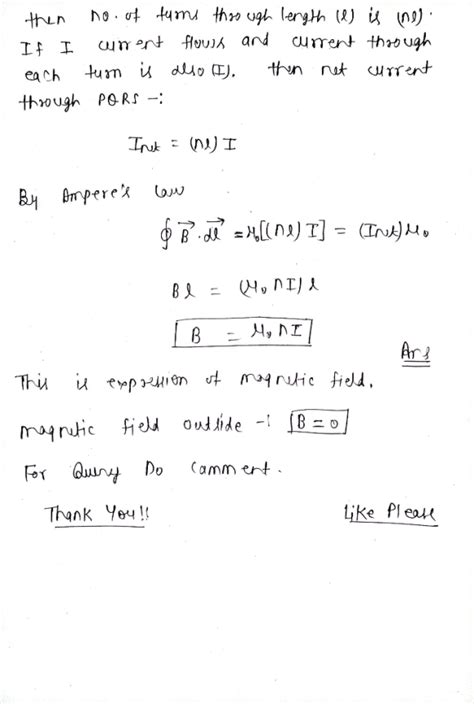 then no. of turns through length (l) is (nl).
If I current flows and current through
each turn is also (I). then net current
through PQRS -:
Inet = (nl) I
By Ampere's law
∮ B⃗.dl⃗ = μ₀[(nl) I] = (Inet) μ₀
Bl = (μ₀ nI) l
B = μ₀ nI
Ans
This is expression of magnetic field.
magnetic field outside -: B = 0
For Query Do Comment.
Thank You!! Like Please